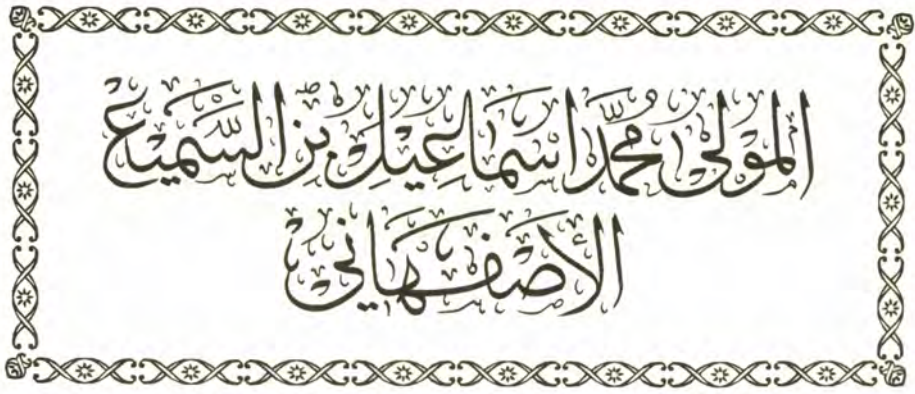 المولى محمد اسماعيل بن السميع
الأصفهاني